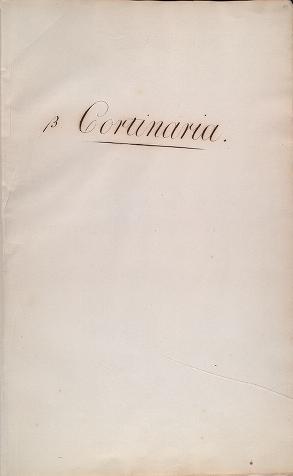 β Cortinaria.